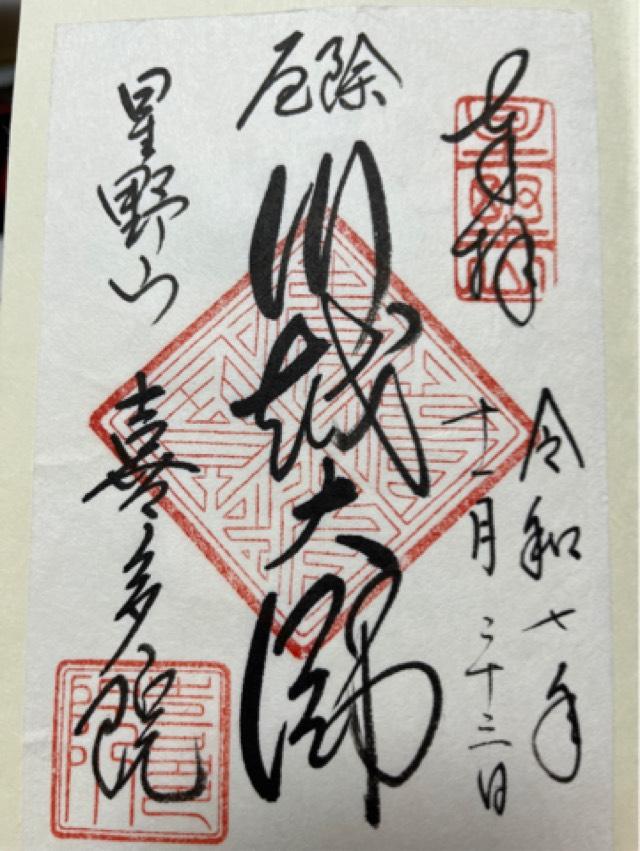 奉拝
令和七年
十一月二十三日
厄除
川越大師
星野山
喜多院